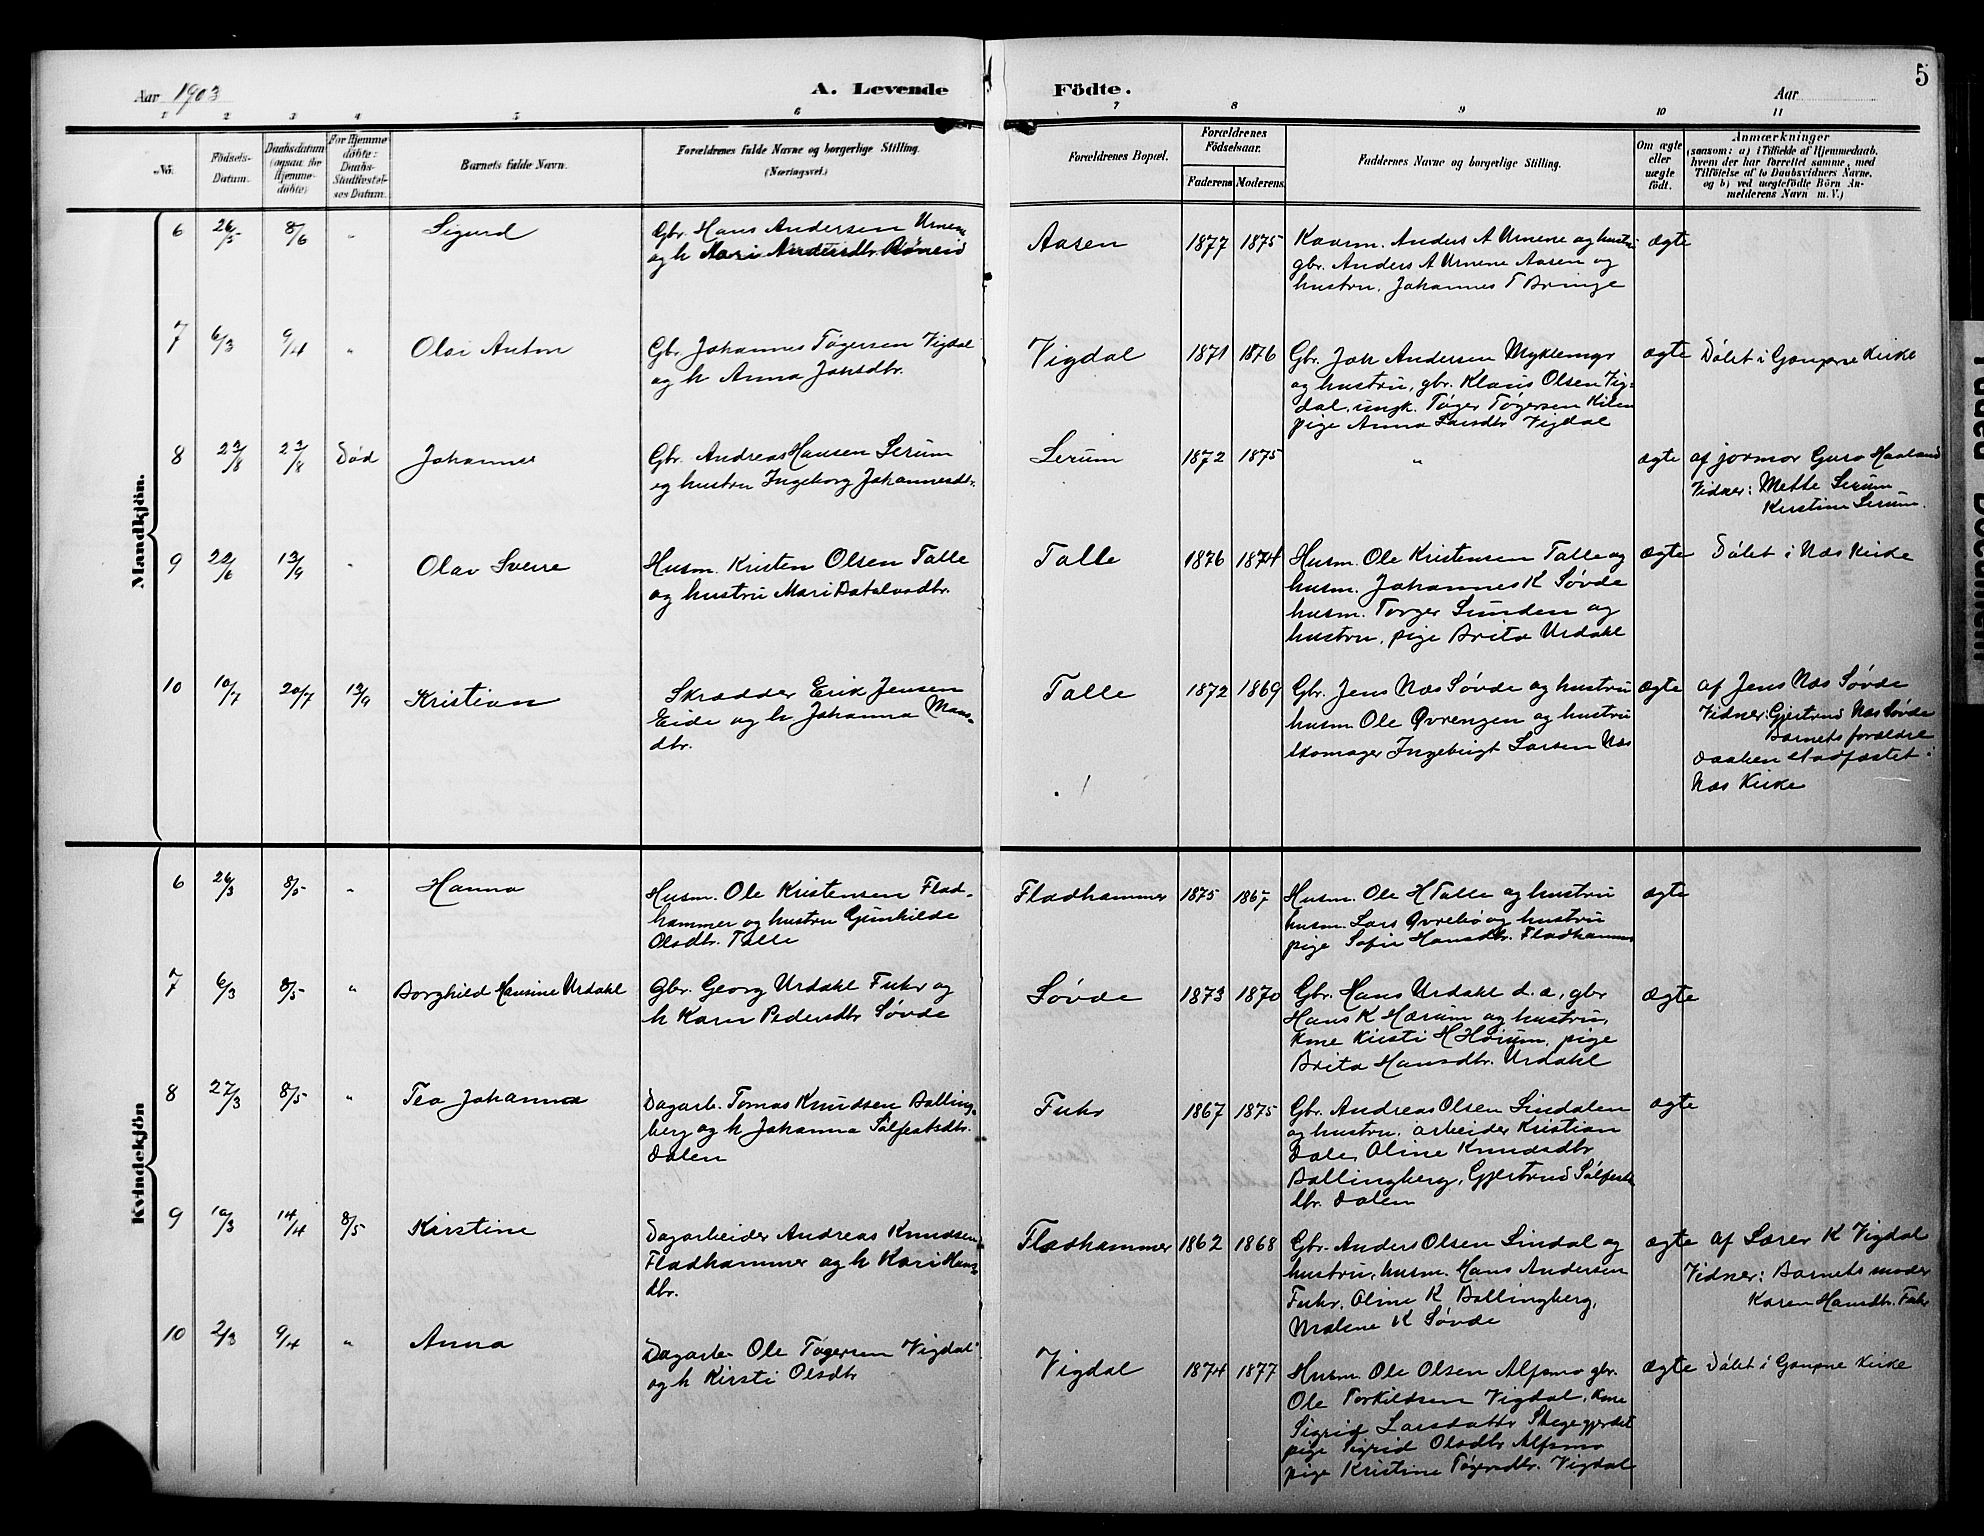 Aar 1903
A. Levende Födte.
Aar
5
1 2 3 4 5 6 7 8 9 10 11
No.
Födsels-Datum.
Daabsdatum (ogsaa for Hjemme-döbte)
For Hjemme-döbte: Daabs-Stadfæstel-ses Datum.
Barnets fulde Navn.
Forældrenes fulde Navne og borgerlige Stilling. (Næringsvei.)
Forældrenes Bopæl.
Forældrenes Födselsaar.
Faderens Moderens
Faddernes Navne og borgerlige Stilling.
Om ægte eller uægte födt.
Anmærkninger
(saasom: a) i Tilfælde af Hjemmedaab,
hvem der har forrettet samme, med
Tilföielse af to Daabsvidners Navne,
og b) ved uægtefödte Börn An-
melderens Navn m. V.)
Mandkjön.
6 26/5 8/6 " Sigurd
Gbr. Hans Andersen Urnene
og h Mari Andersdbr. Røneid
Aasen 1877 1875
Kaarm. Anders A Urnene og hustru
gbr. Anders A Urnene Aasen og
hustru, Johannes T Bringe
ægte
7 6/3 9/4 " Olai Anton
Gbr. Johannes Tøgersen Vigdal
og h Anna Johsdbr.
Vigdal 1871 1876
Gbr. Joh Andersen Myklemyr
og hustru, gbr. Klaus Olsen Vig-
dal, ungk. Tøger Tøgersen Kilen
pige Anna Larsdbr Vigdal
ægte Døbt i Gaupne Kirke
8 23/8 23/8 Død Johannes
Gbr. Andreas Hansen Lerum
og hustru Ingeborg Johannesdbr.
Lerum 1872 1875
"
ægte af jormor Guro Haaland
Vidner: Mette Lerum
Kirstine Lerum.
9 22/6 13/9 " Olav Sverre
Husm. Kristen Olsen Talle
og hustru Mari Botolvsdbr.
Talle 1876 1874
Husm. Ole Kristensen Talle og
husm. Johannes K Søvde
husm. Torger Sunden og
hustru, pige Brita Urdahl
ægte Døbt i Næs Kirke
10 10/7 20/7 13/9 Kristian
Skrædder Erik Jensen
Eide og h Johanna Mons-
dbr.
Talle 1872 1869
Gbr. Jens Næs Søvde og hustru
husm Ole Øvrengen og hustru
skomager Ingebrigt Larsen Næs
ægte af Jens Næs Søvde
Vidner: Gjertrud Næs Søvde
Barnets forældre
Daaben stadfæstet i
Næs Kirke
Kvindekjön
6 26/3 8/5 " Hanna
Husm. Ole Kristensen Flad-
hammer og hustru Gunhilde
Olsdbr. Talle
Fladhammer 1875 1867
Husm. Ole H Talle og hustru
husm. Lars Øvrebø og hustru
pige Sofie Hansdbr. Fladhammer
ægte
7 6/3 8/5 " Borghild Hansine Urdahl
Gbr. Georg Urdahl Fuhr og
h Karen Pedersdbr Søvde
Søvde 1873 1870
Gbr. Hans Urdahl d.æ, gbr
Hans K Hærum og hustru,
kone Kirsti H Høium, pige
Brita Hansdbr. Urdahl
ægte
8 27/3 8/5 " Tea Johanna
Dagarb. Tomas Knudsen Balling-
berg og h Johanna Sølfestsdbr.
Dalen
Fuhr 1867 1875
Gbr. Andreas Olsen Lindalen
og hustru, arbeider Kristian
Dale, Oline Knudsdbr
Ballingberg, Gjertrud Sølfests
dbr. Dalen
ægte
9 10/3 14/4 8/5 Kirstine
Dagarbeider Andreas Knudsen
Fladhammer og h Kari Hans-
dbr.
Fladhammer 1862 1868
Gbr. Anders Olsen Lindal og
hustru, husm. Hans Andersen
Fuhr, Oline K Ballingberg,
Malene K Søvde
ægte af Lærer K Vigdal
Vidner: Barnets moder
Karen Hansdbr. Fuhr
10 2/3 9/4 " Anna
Dagarb. Ole Tøgersen Vigdal
og h Kirsti Olsdbr
Vigdal 1874 1877
Husm. Ole Olsen Alfsmo gbr.
Ole Torkildsen Vigdal, kone
Sigrid Larsdatter Skegegjerdet
pige Sigrid Olsdbr Alfsmo
pige Kristine Tøgersdbr. Vigdal
ægte Døbt i Gaupne Kirke